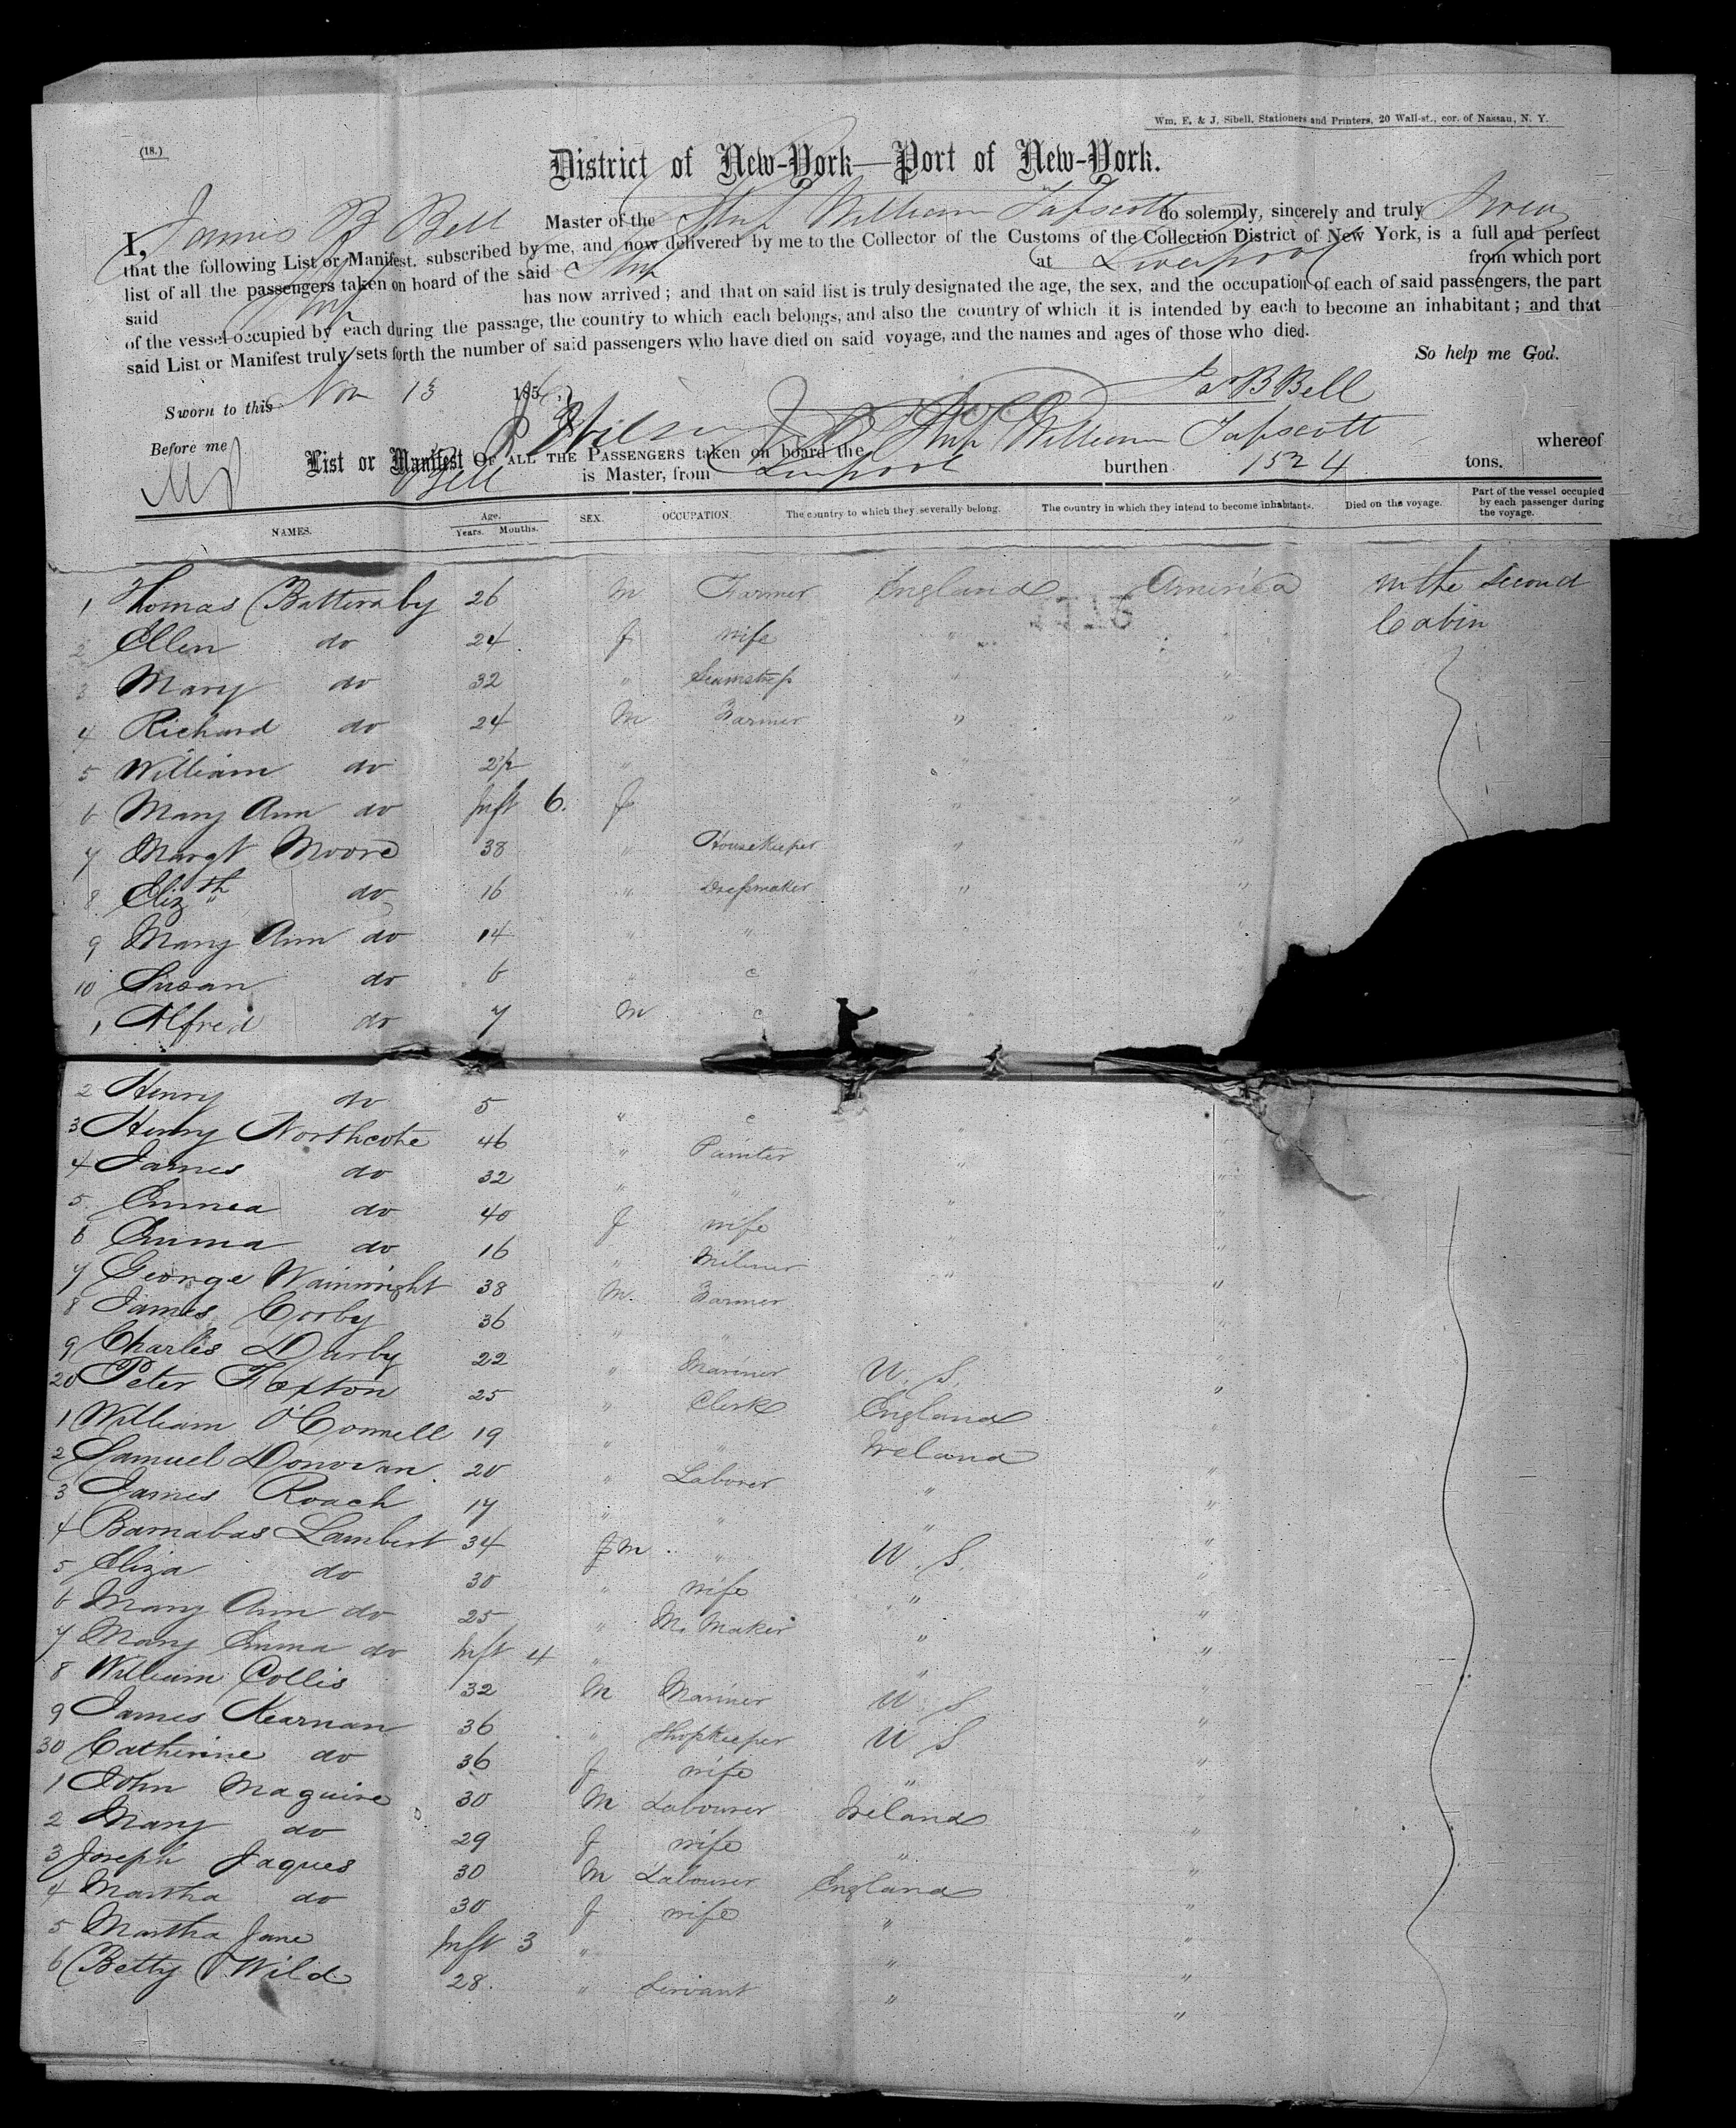 Wm. F. & J. Sibell, Stationers and Printers, 20 Wall-st., cor. of Nassau, N. Y.
(18.)
District of New-York—Port of New-York.
I, James B Bell Master of the Ship William Tapscott do solemnly, sincerely and truly Swear
that the following List or Manifest, subscribed by me, and now delivered by me to the Collector of the Customs of the Collection District of New York, is a full and perfect
list of all the passengers taken on board of the said Ship at Liverpool from which port
said Ship has now arrived; and that on said list is truly designated the age, the sex, and the occupation of each of said passengers, the part
of the vessel occupied by each during the passage, the country to which each belongs, and also the country of which it is intended by each to become an inhabitant; and that
said List or Manifest truly sets forth the number of said passengers who have died on said voyage, and the names and ages of those who died.
So help me God.
Sworn to this Nov 13 185 Jas B Bell
Before me
List or Manifest OF ALL THE PASSENGERS taken on board the Ship William Tapscott whereof
Bell is Master, from Liverpool burthen 1524 tons.
NAMES. Age. Years. Months. SEX. OCCUPATION. The country to which they severally belong. The country in which they intend to become inhabitants. Died on the voyage. Part of the vessel occupied by each passenger during the voyage.
1 Thomas Battersby 26 M Farmer England America in the Second
2 Ellen do 24 f wife " " Cabin
3 Mary do 32 " Seamstress " "
4 Richard do 24 M Farmer " "
5 William do 2½ " "
6 Mary Ann do Inft 6. f " "
7 Margt Moore 38 " Housekeeper " "
8 Elizth do 16 " Dressmaker " "
9 Mary Ann do 14 " "
10 Susan do 6 " c "
1 Alfred do 7 M c "
2 Henry do 5 " c "
3 Henry Northcote 46 " Painter " "
4 James do 32 " " " "
5 Emma do 40 f wife " "
6 Emma do 16 " Miliner " "
7 George Wainwright 38 M. Farmer "
8 James Corby 36 " " "
9 Charles Darby 22 " Mariner U. S. "
20 Peter Foxton 25 " Clerk England "
1 William O'Connell 19 " " Ireland
2 Samuel Donovan 20 " Laborer " "
3 James Roach 17 " " " "
4 Barnabas Lambert 34 M " U. S. "
5 Eliza do 30 " wife " "
6 Mary Ann do 25 " M. Maker " "
7 Mary Emma do Inft 4 " " "
8 William Collis 32 M Mariner U S "
9 James Kearnan 36 " Shopkeeper U S "
30 Catherine do 36 f wife " "
1 John Maguire 30 M Labourer Ireland "
2 Mary do 29 f wife " "
3 Joseph Jaques 30 M Labourer England "
4 Martha do 30 f wife " "
5 Martha Jane Inft 3 " " "
6 Betty Wild 28. " Servant " "